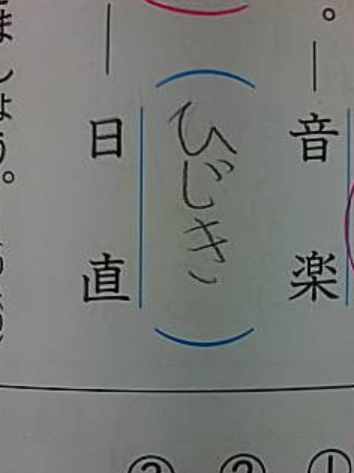 。― 音楽
（ひじき）
― 日直
ましょう。
①
②
③